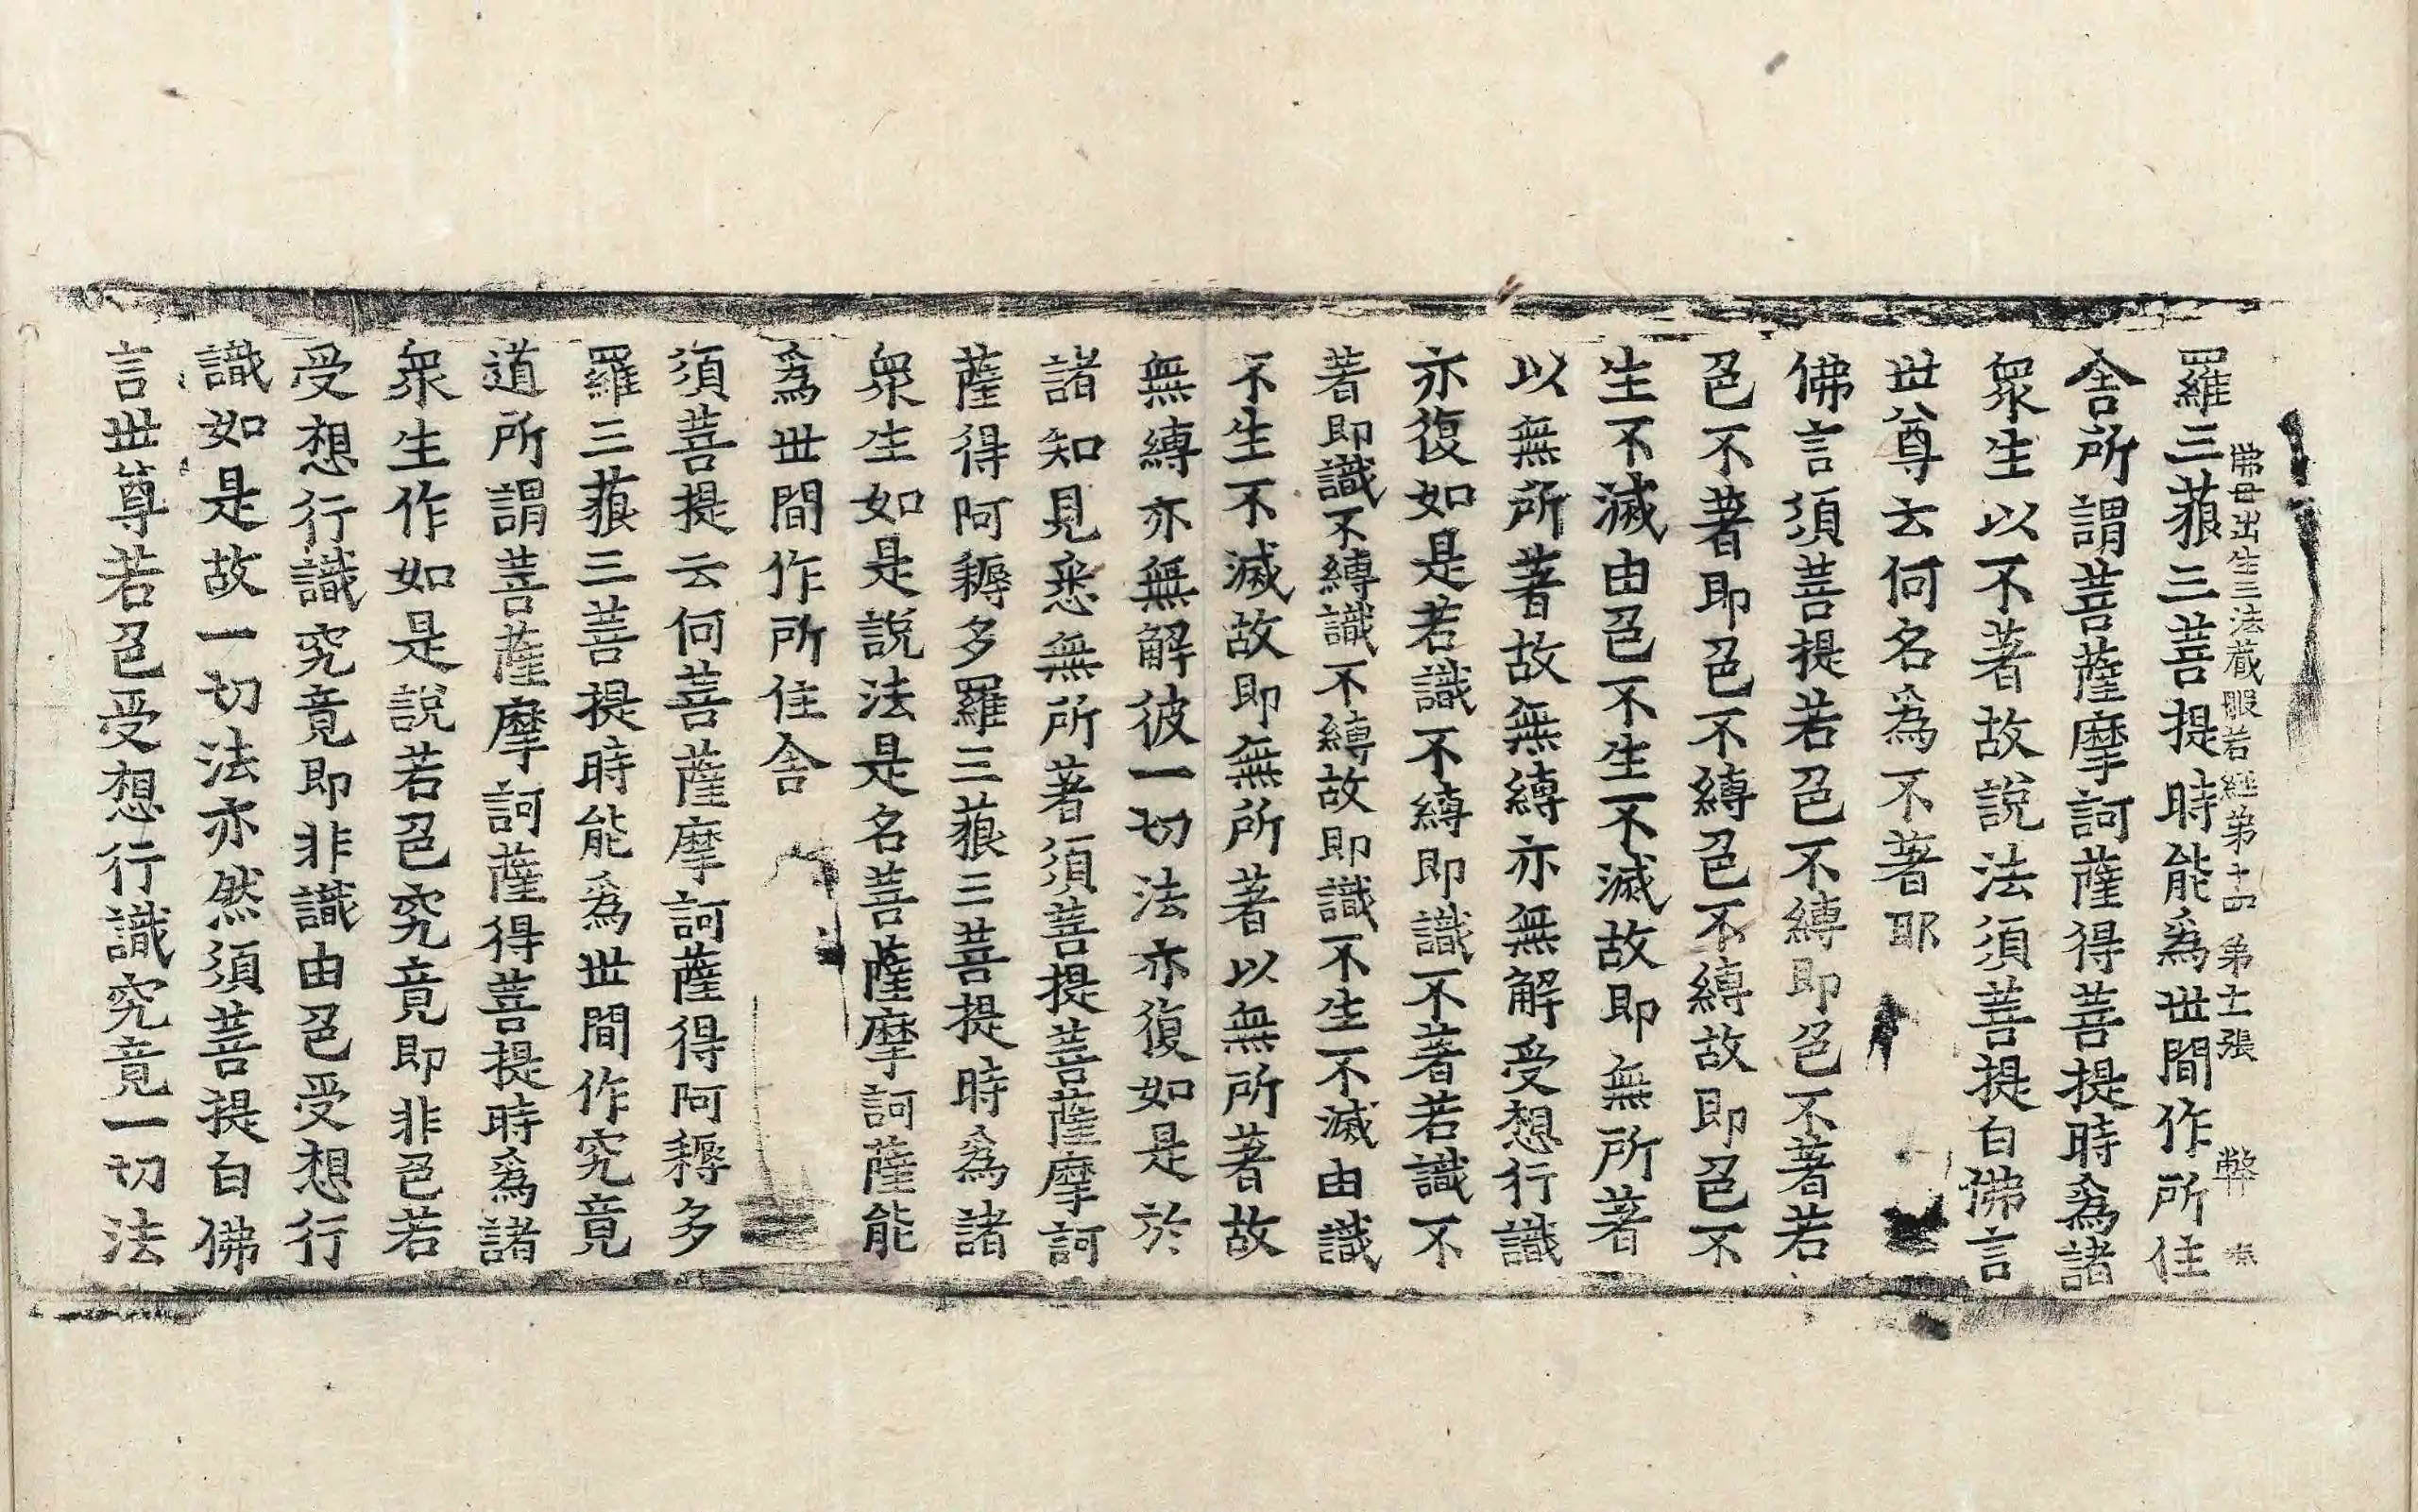 佛母出生三法藏般若經第十四 第十張 弊
羅三藐三菩提時能爲世間作所住
舍所謂菩薩摩訶薩得菩提時爲諸
衆生以不著故說法須菩提白佛言
世尊云何名爲不著耶
佛言須菩提若色不縛即色不著若
色不著即色不縛色不縛故即色不
生不滅由色不生不滅故即無所著
以無所著故無縛亦無解受想行識
亦復如是若識不縛即識不著若識不
著即識不縛識不縛故即識不生不滅由識
不生不滅故即無所著以無所著故
無縛亦無解彼一切法亦復如是於
諸知見悉無所著須菩提菩薩摩訶
薩得阿耨多羅三藐三菩提時爲諸
衆生如是說法是名菩薩摩訶薩能
爲世間作所住舍
須菩提云何菩薩摩訶薩得阿耨多
羅三藐三菩提時能爲世間作究竟
道所謂菩薩摩訶薩得菩提時爲諸
衆生作如是說若色究竟即非色若
受想行識究竟即非識由色受想行
識如是故一切法亦然須菩提白佛
言世尊若色受想行識究竟一切法